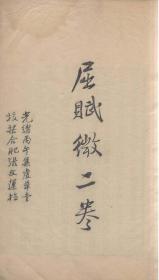 屈賦微二卷
光緒丙午集虛草堂
校栞合肥張文運檢